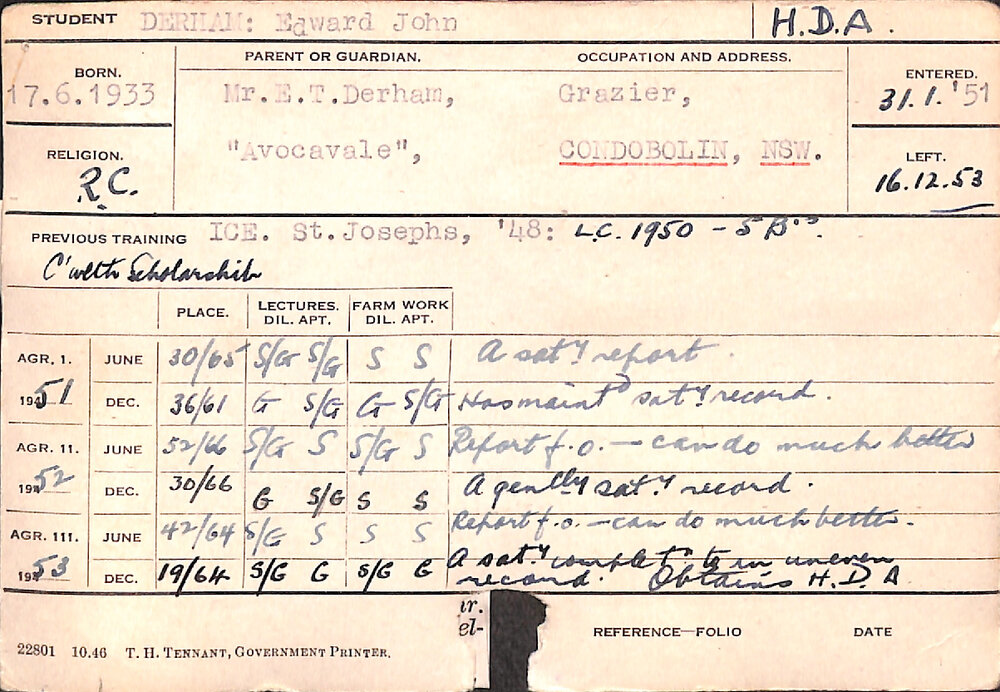 STUDENT DERHAM: Edward John H.D.A.
BORN. PARENT OR GUARDIAN. OCCUPATION AND ADDRESS. ENTERED.
17.6.1933 Mr.E.T.Derham, Grazier, 31.1.'51
RELIGION. "Avocavale", CONDOBOLIN, NSW. LEFT.
R.C. 16.12.53
PREVIOUS TRAINING ICE. St.Josephs, '48: L.C. 1950 - 5 B's.
C'wlth Scholarship
PLACE. LECTURES. DIL. APT. FARM WORK DIL. APT.
AGR. 1. JUNE 30/65 S/G S/G S S A sat.y report.
1951 DEC. 36/61 G S/G G S/G Has maint.d sat.y record.
AGR. 11. JUNE 52/66 S/G S S/G S Report f.o. - can do much better
1952 DEC. 30/66 G S/G S S A gen.lly sat.y record.
AGR. 111. JUNE 42/64 S/G S S S Report f.o. - can do much better.
1953 DEC. 19/64 S/G G S/G G A sat.y complet.n to an uneven
record. Obtains H.D.A
ir.
el-
REFERENCE-FOLIO DATE
22801 10.46 T. H. TENNANT, GOVERNMENT PRINTER.